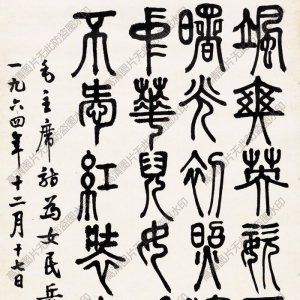 颯爽英姿
曙光初照演
中華兒女
不愛紅裝
毛主席詩為女民兵
一九六四年十二月十七日